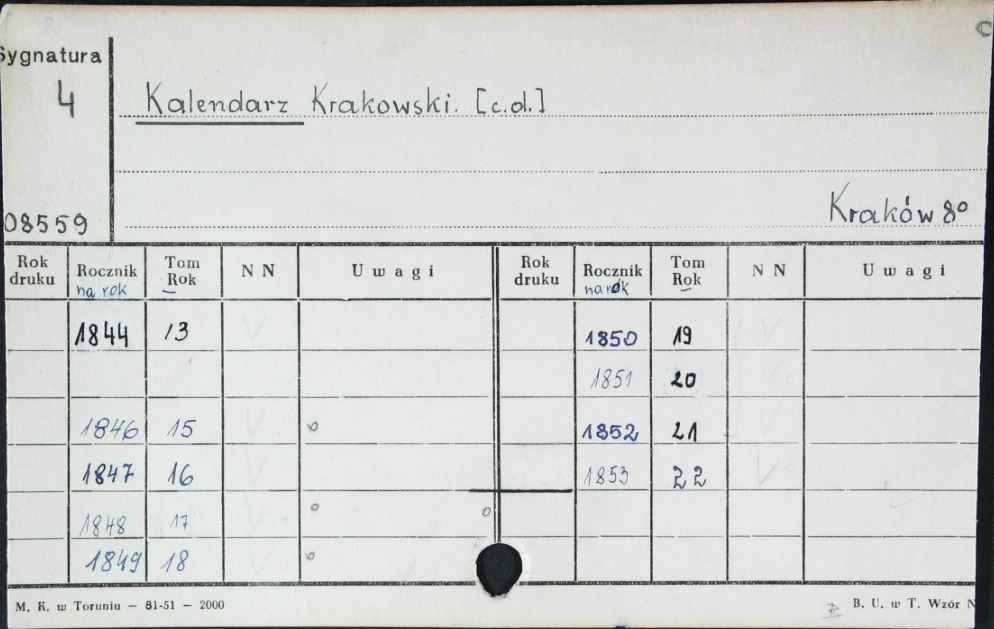 Sygnatura
4
Kalendarz Krakowski. [c.d.]
08559
Kraków 8°
Rok druku Rocznik na rok Tom Rok N N Uwagi Rok druku Rocznik na rok Tom Rok N N Uwagi
1844 13 V 1850 19 V
1851 20
1846 15 V 1852 21
1847 16 V 1853 22 V
1848 17
1849 18
M. K. w Toruniu – 81-51 – 2000
B. U. w T. Wzór N